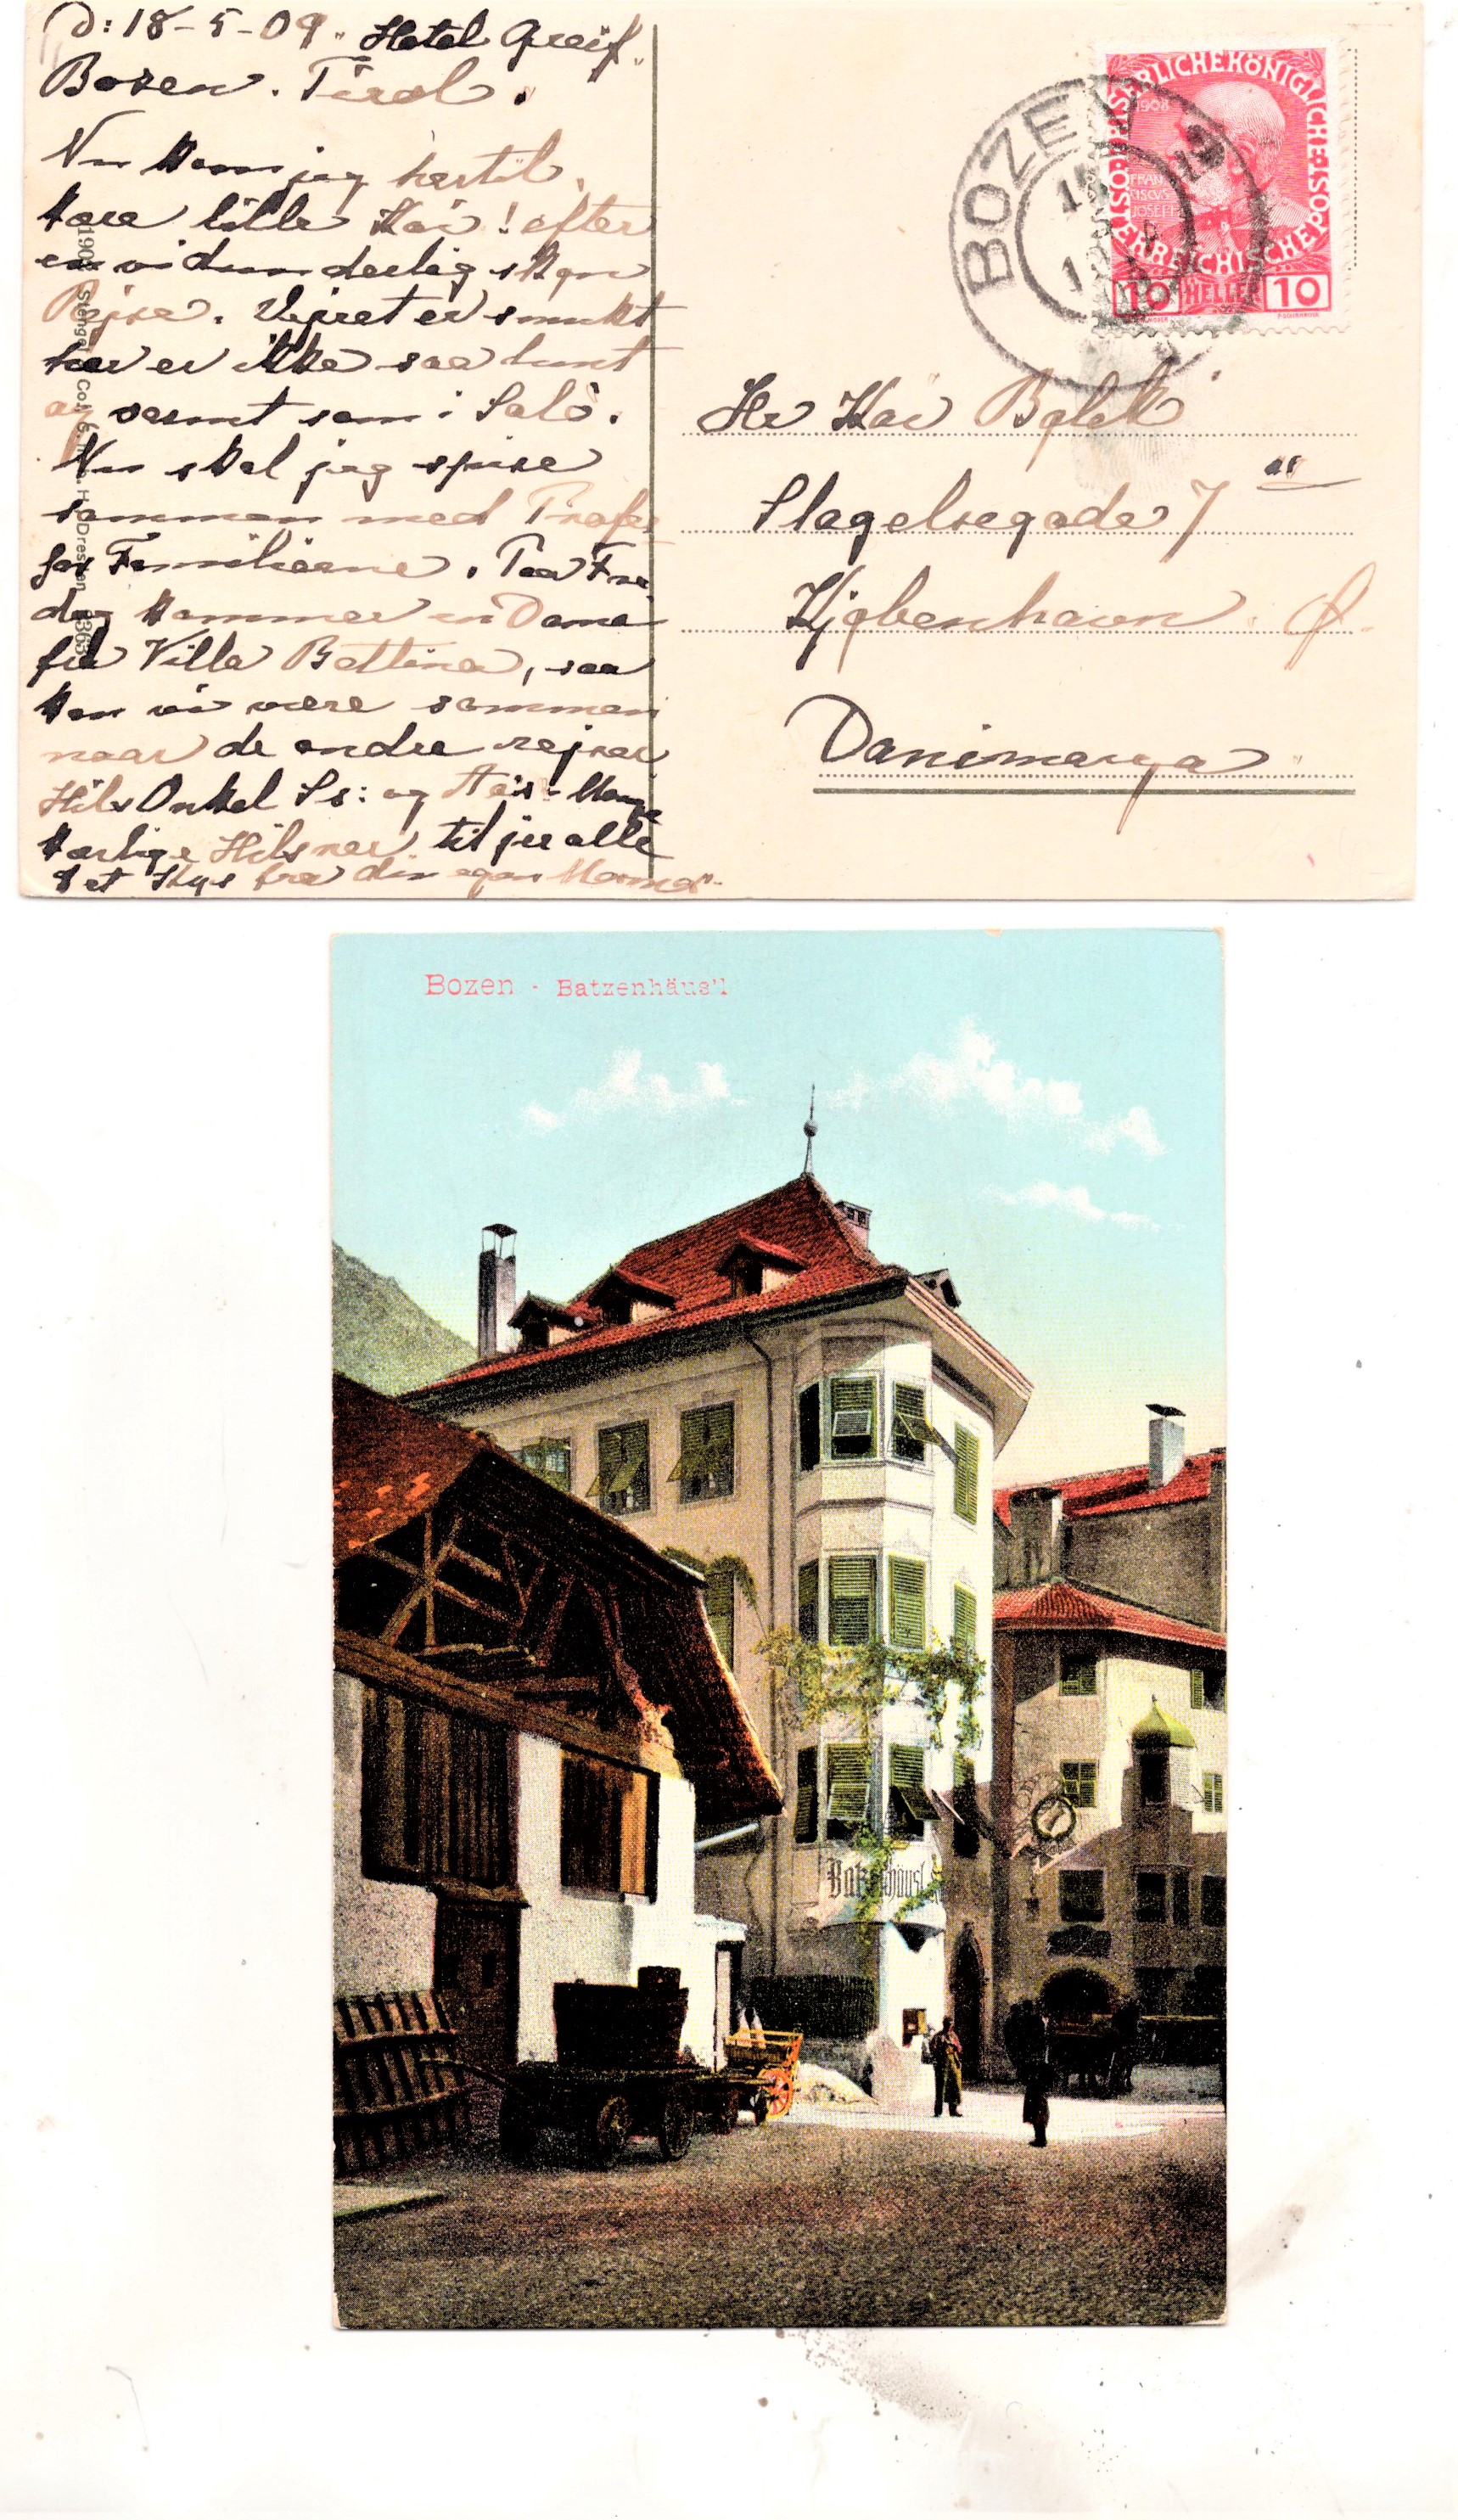 D: 18-5-09. Hotel Greif.
Bozen. Tirol.
Nu kom jag hertil,
kære lille Kai! efter
en vidunderlig skøn
Rejse. Vejret er smukt
her er ikke saa lunt
og varmt som i Salò.
Nu skal jag spise
sammen med Profes
sor Familierne. Paa Fre
dag kommer en Dame
fra Villa Bettina, saa
kan vi være sammen
naar de andre rejser
Hils Onkel Ss: og Mange
kærlige Hilsner til jer alle
& et Kys fra din egen Mamma.
Stengel & Co., G. m. b. H., Dresden
BOZEN
KAISERLICHEKÖNIGLICHE ÖSTERREICHISCHE POST
1908
FRAN
CISCVS
JOSEPH
10 HELLER 10
Hr Kai
Slagelsegade 7
Kjøbenhavn. Ø.
Danimarca
Bozen - Batzenhäus'l
Batzenhäusl